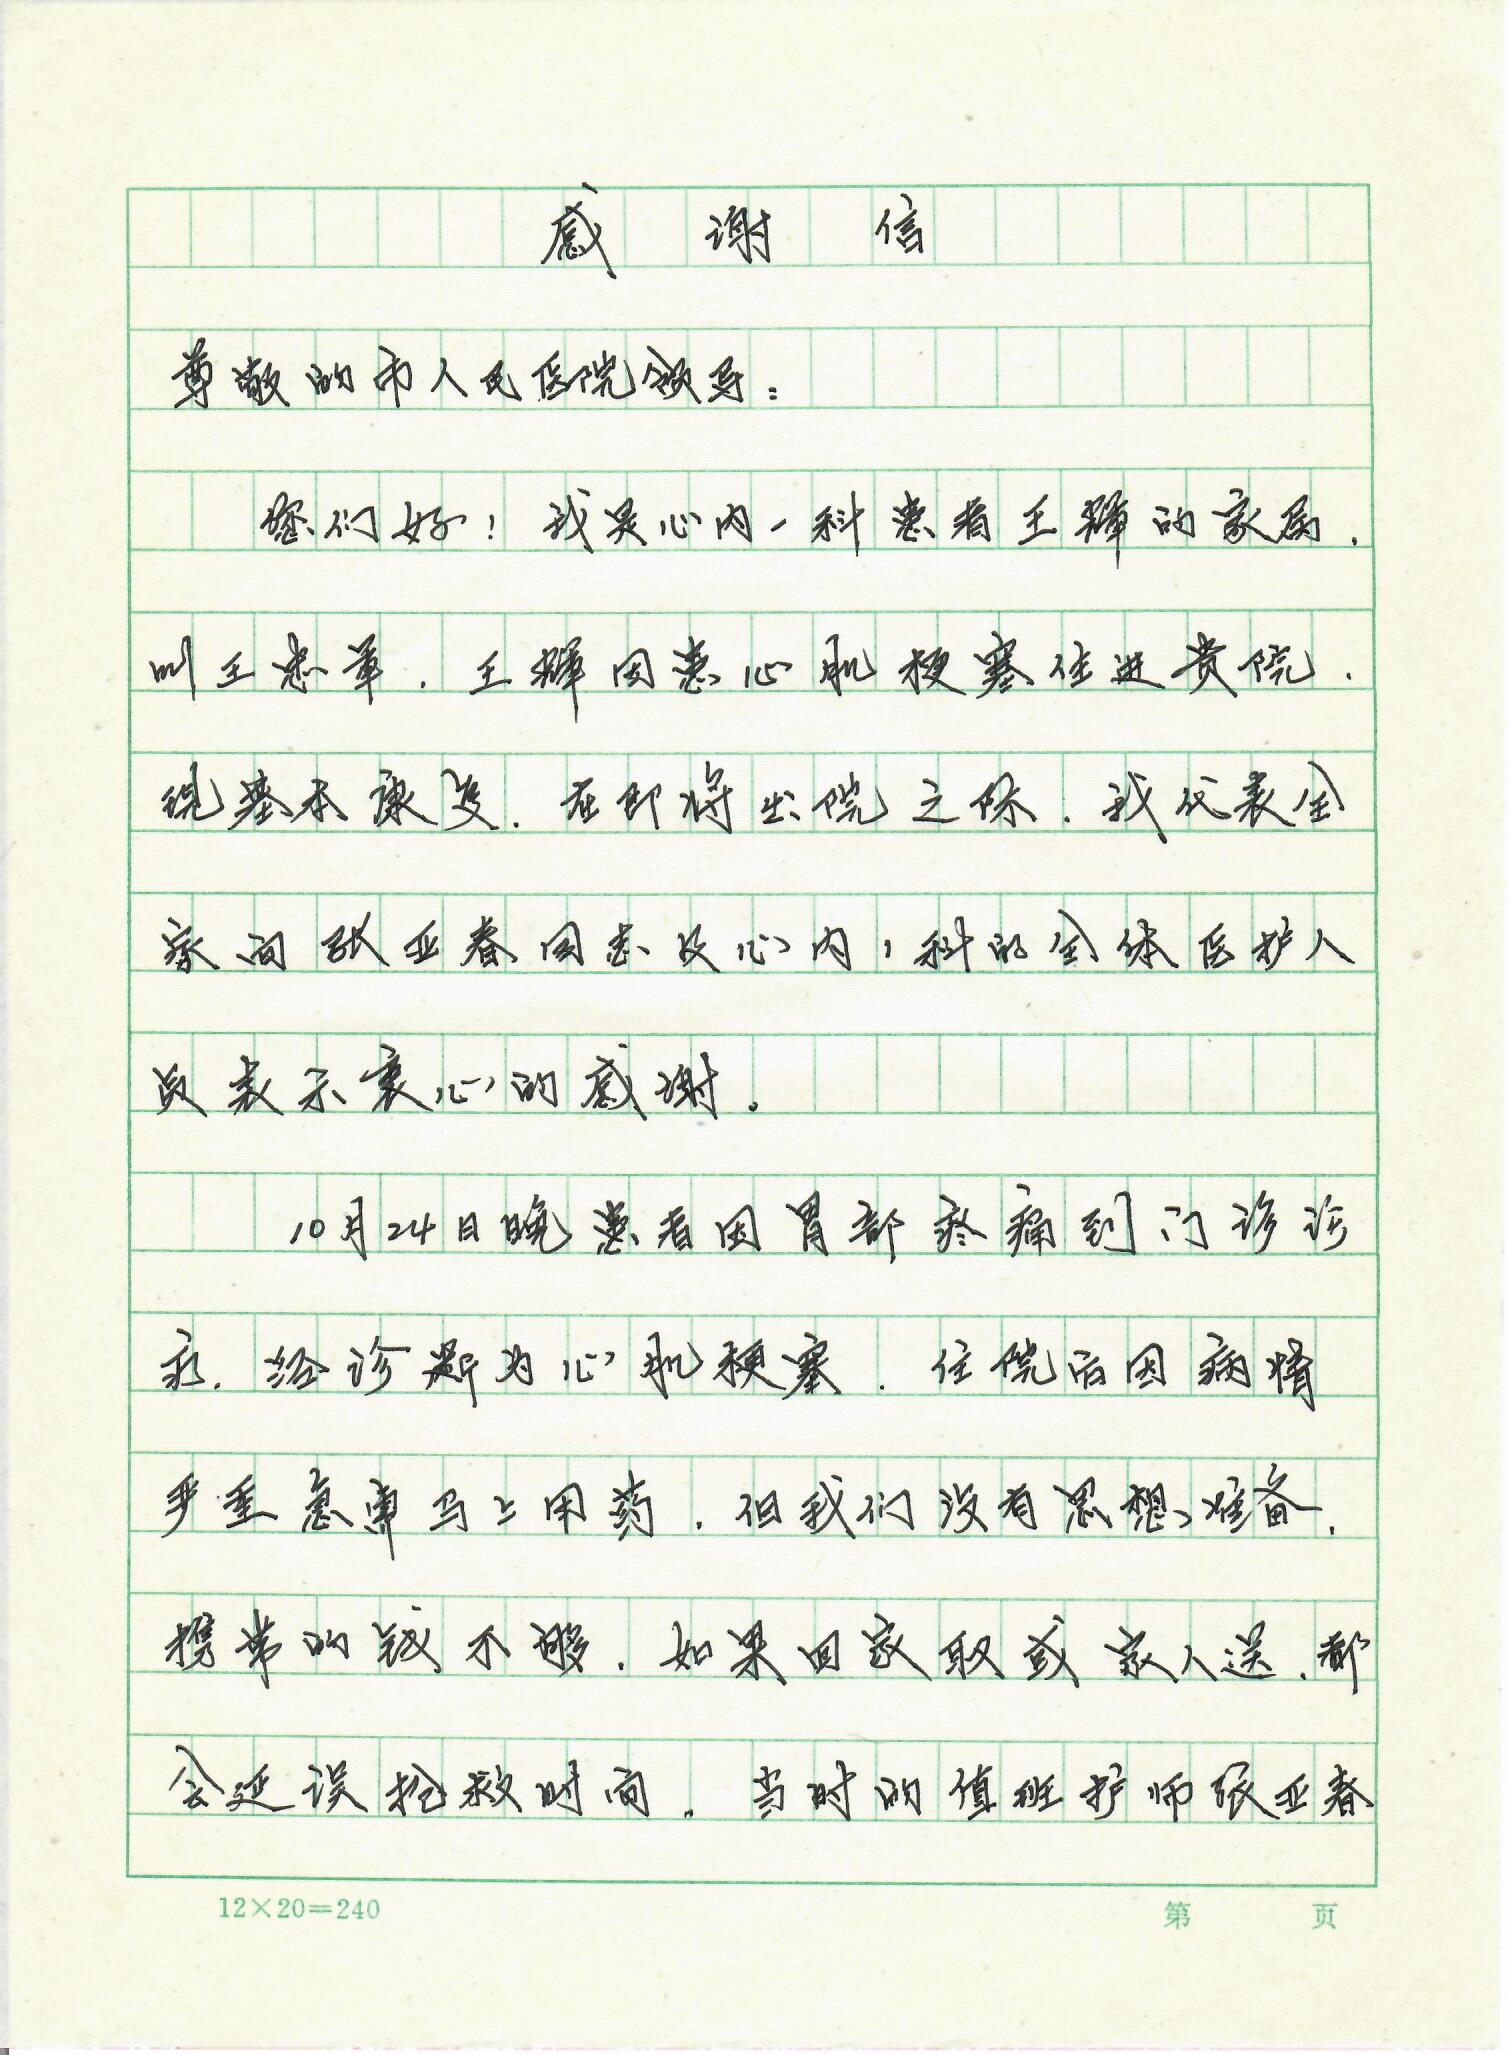 感谢信
尊敬的市人民医院领导：
您们好！我是心内一科患者王辉的家属，
叫王忠革，王辉因患心肌梗塞住进贵院，
现基本康复，在即将出院之际，我代表全
家向张亚春同志及心内一科的全体医护人
员表示衷心的感谢。
10月24日晚患者因胃部疼痛到门诊诊
疗，经诊断为心肌梗塞，住院后因病情
严重急需马上用药，但我们没有思想准备，
携带的钱不够，如果回家取或家人送，都
会延误抢救时间。当时的值班护师张亚春
12×20=240
第 页